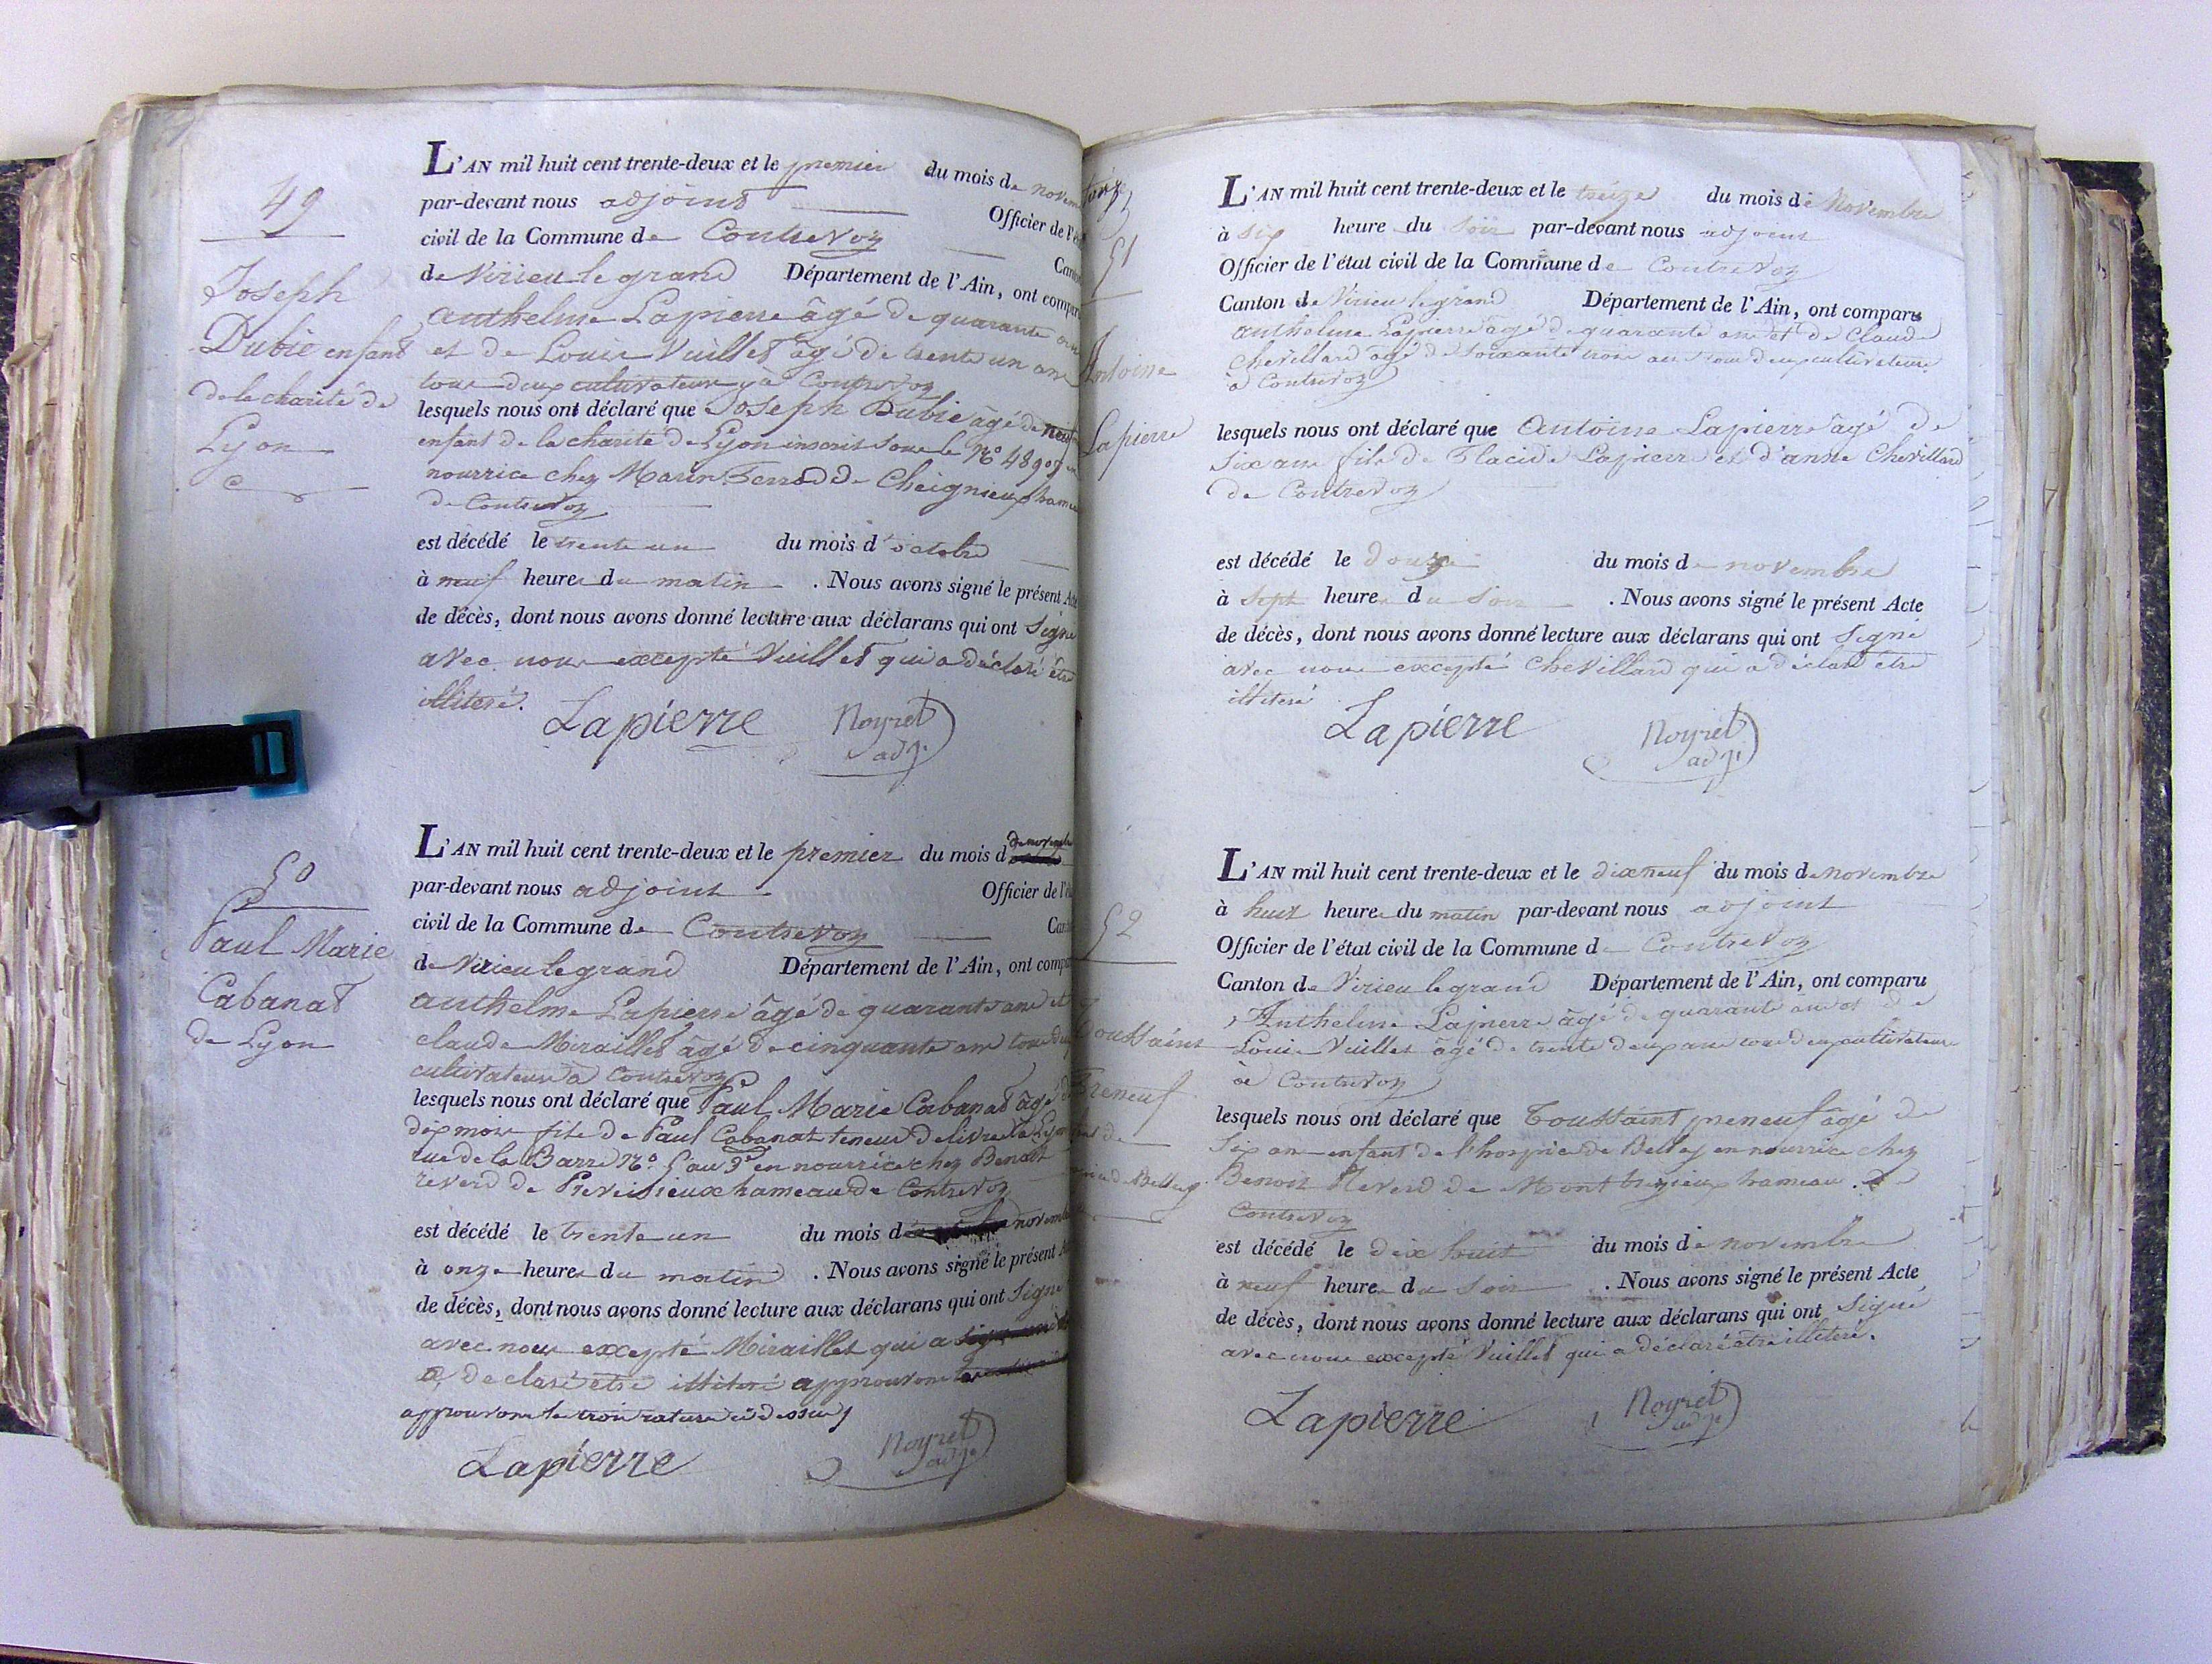 49
Joseph
Dubié enfant
de la charité de
Lyon
L'AN mil huit cent trente-deux et le premier du mois de novem
par-devant nous adjoint Officier de l'é
civil de la Commune de Contrevoz Canton
de Virieu le grand Département de l'Ain, ont compar
Anthelme Lapierre âgé de quarante ans
et de Louis Vuillet âgé de trente un ans
tous deux cultivateurs à Contrevoz
lesquels nous ont déclaré que Joseph Dubié âgé de neuf
enfant de la charité de Lyon inscrit sous le N.o
nourrice chez Marin Ferrod de Cheignieux hameau
de Contrevoz
est décédé le trente un du mois d'octobre
à neuf heures du matin . Nous avons signé le présent Acte
de décès, dont nous avons donné lecture aux déclarans qui ont signé
avec nous excepté Vuillet qui a déclaré être
illiteré.
Lapierre Noyret
adj.
50
Paul Marie
Cabanat
de Lyon
L'AN mil huit cent trente-deux et le premier du mois d de novembre
par-devant nous adjoint Officier de l'é
civil de la Commune de Contrevoz Can
de Virieu le grand Département de l'Ain, ont compa
Anthelme Lapierre âgé de quarante ans et
claude Miraillet âgé de cinquante ans tous deux
cultivateurs à Contrevoz
lesquels nous ont déclaré que Paul Marie Cabanat âgé de
dix mois fils de Paul Cabanat teneur de livres à Lyon
rue de la Barre N.o 5 au 3e en nourrice chez Benoit
reverd de Preveisieux hameau de Contrevoz
est décédé le trente un du mois d novemb
à onze heures du matin . Nous avons signé le présent A
de décès, dont nous avons donné lecture aux déclarans qui ont signé
avec nous excepté Miraillet qui a
a déclaré être illiteré approuvons
approuvons les trois ratures ci dessus
Lapierre Noyret
adj.
51
Antoine
Lapierre
L'AN mil huit cent trente-deux et le treize du mois de Novembre
à six heure du soir par-devant nous adjoint
Officier de l'état civil de la Commune de Contrevoz
Canton de Virieu le grand Département de l'Ain, ont comparu
Anthelme Lapierre âgé de quarante ans et de Claude
Chevillard âgé de soixante trois ans tous deux cultivateurs
à Contrevoz
lesquels nous ont déclaré que Antoine Lapierre âgé de
six ans fils de Placide Lapierre et d'anne Chevillard
de Contrevoz
est décédé le douze du mois de novembre
à sept heures du soir . Nous avons signé le présent Acte
de décès, dont nous avons donné lecture aux déclarans qui ont signé
avec nous excepté Chevillard qui a déclaré être
illiteré
Lapierre Noyret
adj.
52
Toussaint
Preneuf
de Belley
L'AN mil huit cent trente-deux et le dix neuf du mois de novembre
à huit heures du matin par-devant nous adjoint
Officier de l'état civil de la Commune de Contrevoz
Canton de Virieu le grand Département de l'Ain, ont comparu
Anthelme Lapierre âgé de quarante ans et de
Louis Vuillet âgé de trente deux ans tous deux cultivateurs
à Contrevoz
lesquels nous ont déclaré que Toussaint preneuf âgé de
six ans enfant de l'hospice de Belley en nourrice chez
Benoit Reverd de Montbreyzieux hameau de
Contrevoz
est décédé le dix huit du mois de novembre
à neuf heures du soir . Nous avons signé le présent Acte
de décès, dont nous avons donné lecture aux déclarans qui ont signé
avec nous excepté Vuillet qui a déclaré être illiteré.
Lapierre Noyret
adj.